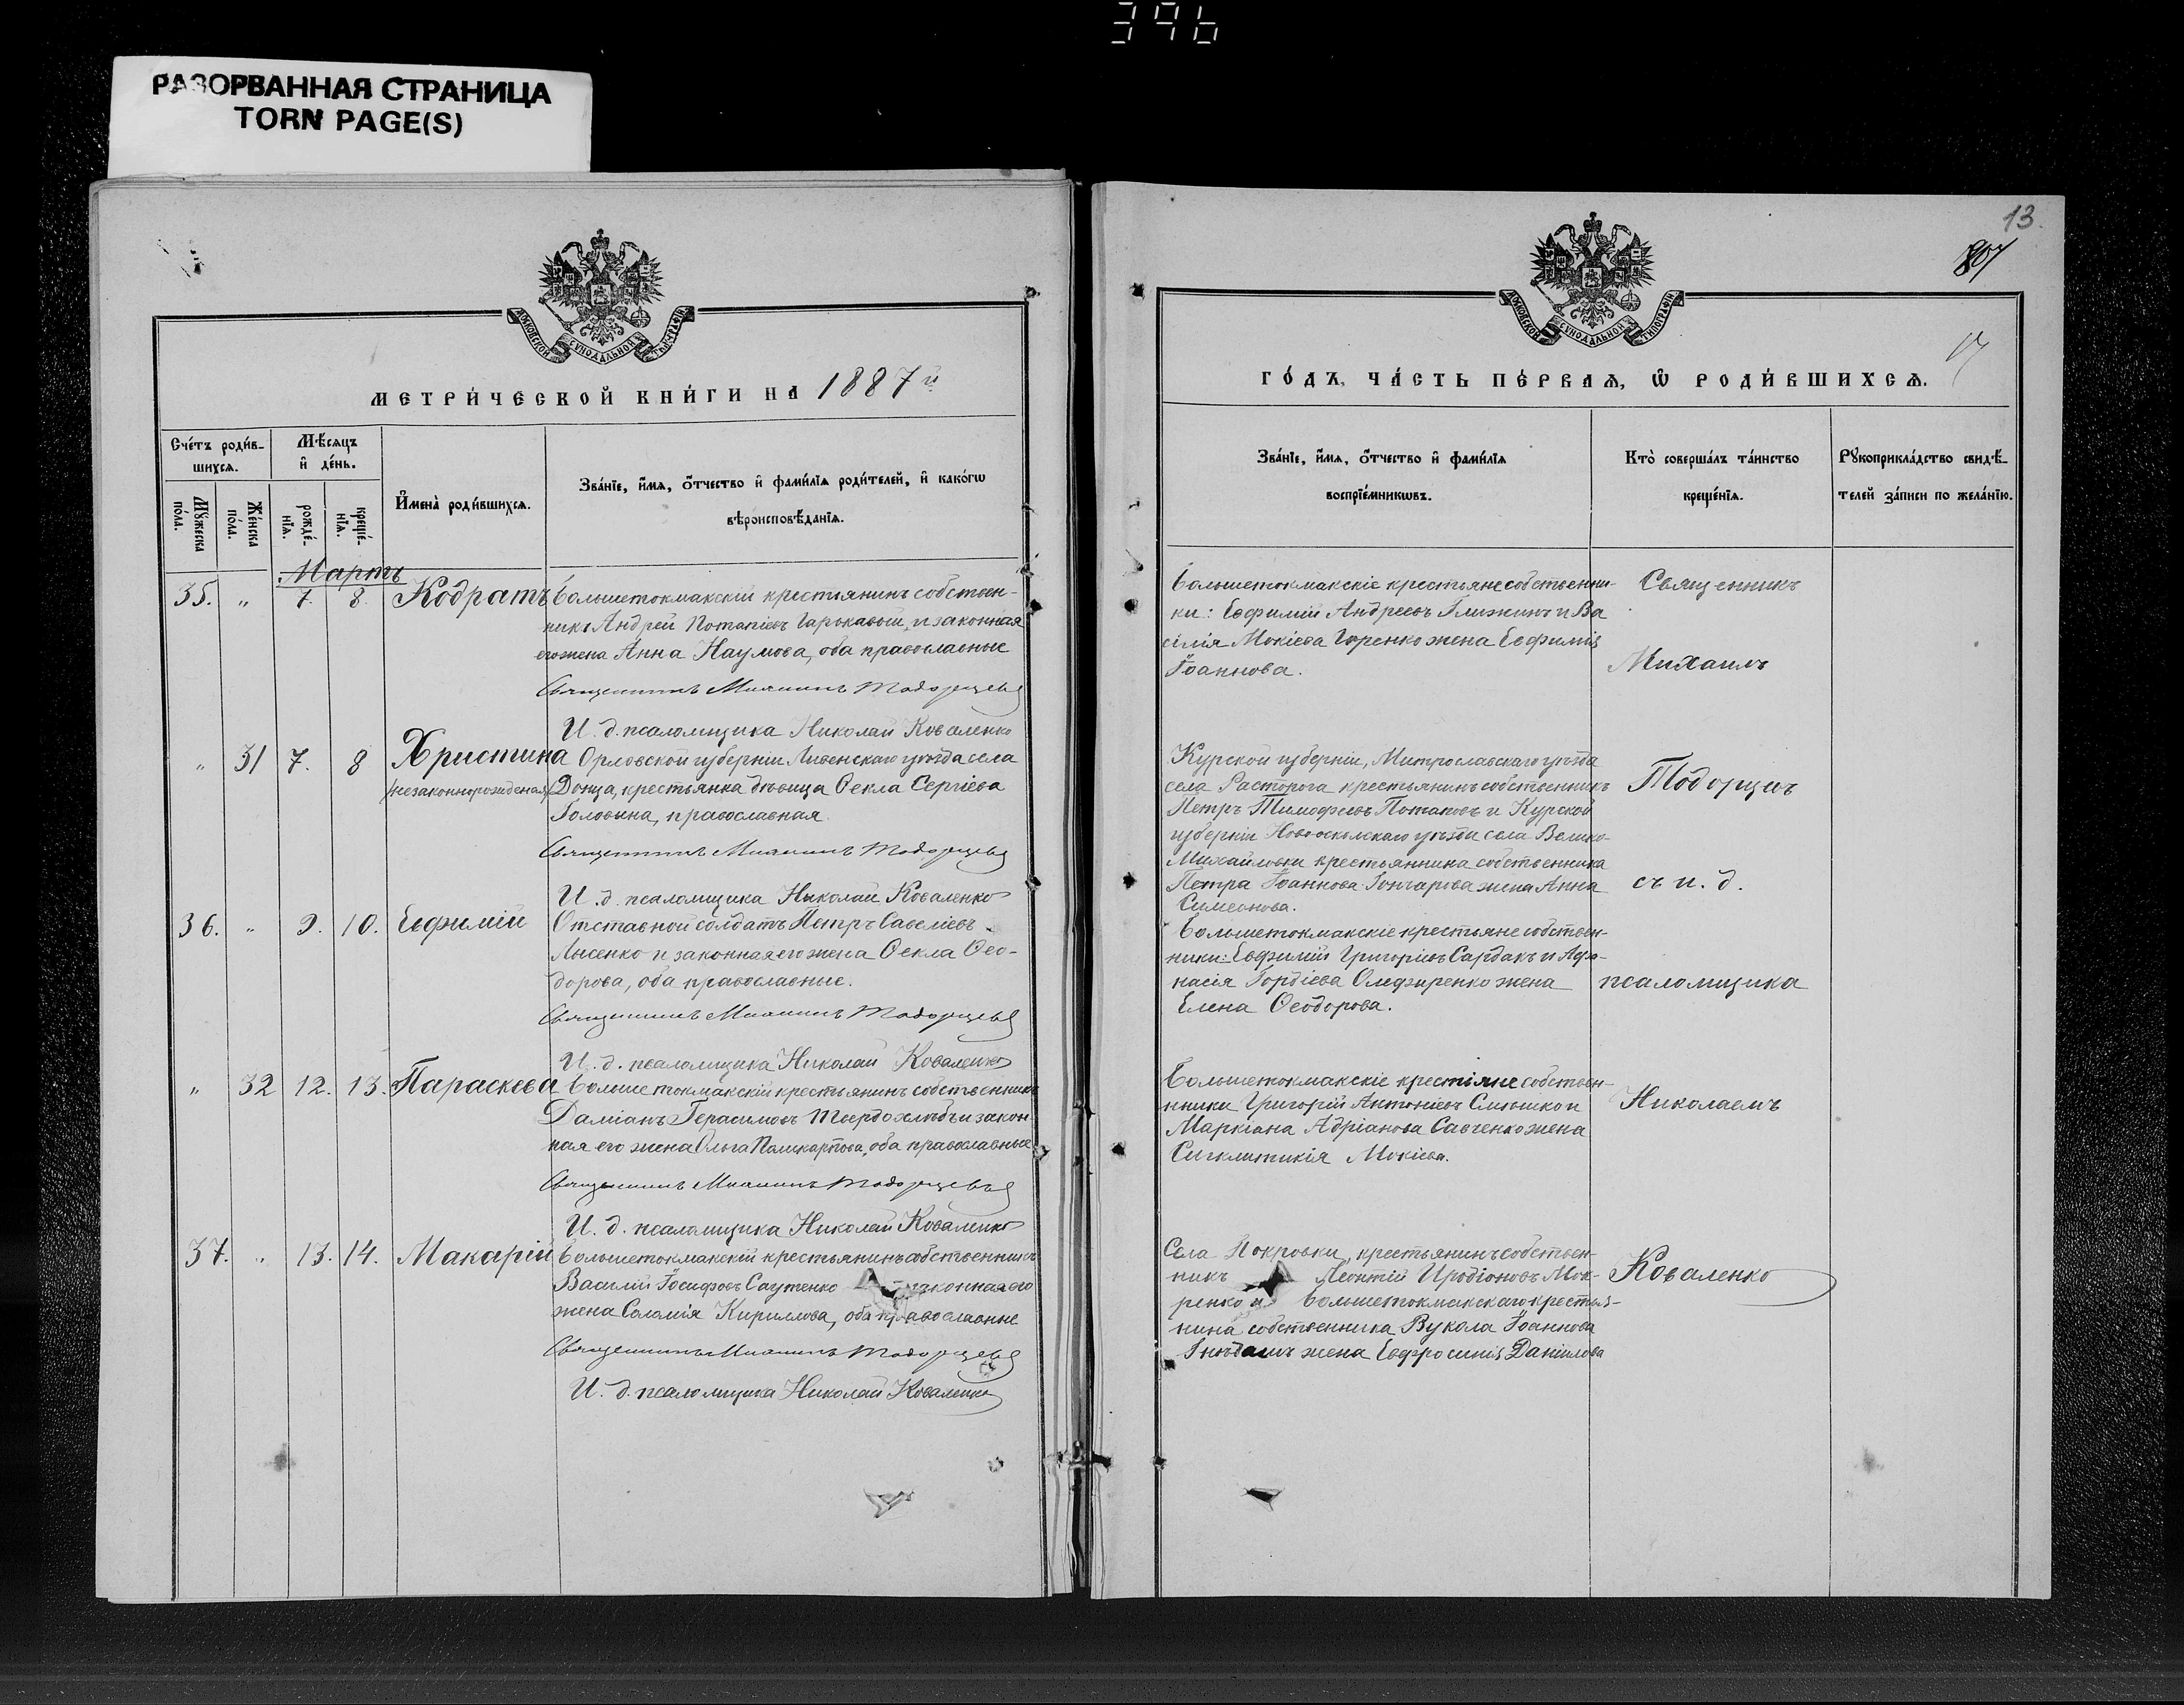 396
РАЗОРВАННАЯ СТРАНИЦА
TORN PAGE(S)
МОСКОВСКОЙ СѴНОДАЛЬНОЙ ТИПОГРАФІИ
МЕТРИ́ЧЕСКОЙ КНИ́ГИ НА 1887й
Сче́тъ роди́в-
шихсѧ.
Мѣ́сѧцъ
и҆ де́нь.
Мꙋ́жеска
по́ла.
Же́нска
по́ла.
рожде́-
нїѧ.
креще́-
нїѧ.
И҆мена̀ роди́вшихсѧ.
Зва́нїе, и҆́мѧ, ѻ҆́тчество и҆ фами́лїѧ роди́телей, и҆ како́гѡ
вѣроисповѣ́данїѧ.
Мартъ
35. " 7. 8. Кодратъ Большетокмакскій крестьянинъ собствен-
никъ Андрей Потапіевъ и законная
его жена Анна Наумова, оба православные
Священникъ Михаилъ Тодорцевъ
И. д. псаломщика Николай Коваленко
" 31 7. 8 Христина Орловской губерніи Ливенскаго уѣзда села
/незаконнорожденая/ Донца, крестьянка дѣвица Ѳекла Сергіева
Головина, православная.
Священникъ Михаилъ Тодорцевъ
И. д. псаломщика Николай Коваленко
36. " 9. 10. Евфимій Отставной солдатъ Петръ Савеліевъ
Лысенко и законная его жена Ѳекла Ѳео-
дорова, оба православные.
Священникъ Михаилъ Тодорцевъ
И. д. псаломщика Николай Коваленко
" 32 12. 13. Параскева Большетокмакскій крестьянинъ собственникъ
Даміанъ Герасимовъ Твердохлѣбъ и закон-
ная его жена Ольга Поликарпова, оба православные
Священникъ Михаилъ Тодорцевъ
И. д. псаломщика Николай Коваленко
37. " 13. 14. Макарій Большетокмакскій крестьянинъ собственникъ
Василій Іосифовъ Саутенко и законная его
жена Соломія Кириллова, оба православные
Священникъ Михаилъ Тодорцевъ
И. д. псаломщика Николай Коваленко
13.
807
17
МОСКОВСКОЙ СѴНОДАЛЬНОЙ ТИПОГРАФІИ
ГО́ДЪ, ЧА́СТЬ ПЕ́РВАѦ, Ѡ҆ РОДИ́ВШИХСѦ.
Зва́нїе, и҆́мѧ, ѻ҆́тчество и҆ фами́лїѧ
воспрїе́мникѡвъ.
Кто̀ соверша́лъ та́инство
креще́нїѧ.
Рꙋкоприкла́дство свидѣ́-
телей за́писи по жела́нїю.
Большетокмакскіе крестьяне собственни-
ки: Евфимій Андреевъ и Ва-
силія Мокіева жена Евфимія
Іоаннова.
Священникъ
Михаилъ
Курской губерніи, уѣзда
села Расторога крестьянинъ собственникъ
Петръ Тимофеевъ Потаповъ и Курской
губерніи Новооскольскаго уѣзда села Велико-
Михайловки крестьянина собственника
Петра Іоаннова Гончарова жена Анна
Симеонова.
Тодорцевъ
съ и. д.
Большетокмакскіе крестьяне собствен-
ники: Евфимій Григоріевъ Сардакъ и Афа-
насія Гордіева Олефиренко жена
Елена Ѳеодорова.
псаломщика
Большетокмакскіе крестіяне собствен-
нники Григорій Антоніевъ и
Маркіана Адріанова Савченко жена
Сигклитикія Мокіева.
Николаемъ
Села Покровки, крестьянинъ собствен-
никъ Леонтій Иродіоновъ Мок-
ренко и Большетокмакскаго крестья-
нина собственника Вукола Іоаннова
жена Евфросинія Даніилова
Коваленко